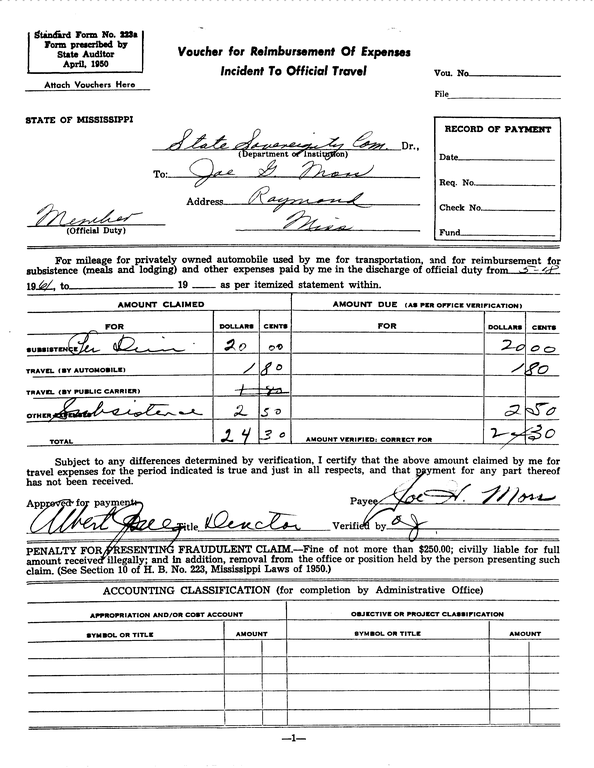 Standard Form No. 223a
Form prescribed by
State Auditor
April, 1950
Attach Vouchers Here
Voucher for Reimbursement Of Expenses
Incident To Official Travel
Vou. No.
File
STATE OF MISSISSIPPI
RECORD OF PAYMENT
Date
Req. No.
Check No.
Fund
State Sovereignty Com. Dr.,
(Department or Institution)
To: Joe G Moss
Address Raymond
Miss
Member
(Official Duty)
For mileage for privately owned automobile used by me for transportation, and for reimbursement for
subsistence (meals and lodging) and other expenses paid by me in the discharge of official duty from 5-18
1961, to 19 as per itemized statement within.
AMOUNT CLAIMED AMOUNT DUE (AS PER OFFICE VERIFICATION)
FOR DOLLARS CENTS FOR DOLLARS CENTS
SUBSISTENCE Per Diem 20 00 20 00
TRAVEL (BY AUTOMOBILE) 1 80 1 80
TRAVEL (BY PUBLIC CARRIER) 1 80
OTHER Subsistence 2 50 2 50
TOTAL 24 30 AMOUNT VERIFIED: CORRECT FOR 24 30
Subject to any differences determined by verification, I certify that the above amount claimed by me for
travel expenses for the period indicated is true and just in all respects, and that payment for any part thereof
has not been received.
Approved for payment: Payee Joe H. Moss
Albert Title Director Verified by
PENALTY FOR PRESENTING FRAUDULENT CLAIM.—Fine of not more than $250.00; civilly liable for full
amount received illegally; and in addition, removal from the office or position held by the person presenting such
claim. (See Section 10 of H. B. No. 223, Mississippi Laws of 1950.)
ACCOUNTING CLASSIFICATION (for completion by Administrative Office)
APPROPRIATION AND/OR COST ACCOUNT OBJECTIVE OR PROJECT CLASSIFICATION
SYMBOL OR TITLE AMOUNT SYMBOL OR TITLE AMOUNT
—1—